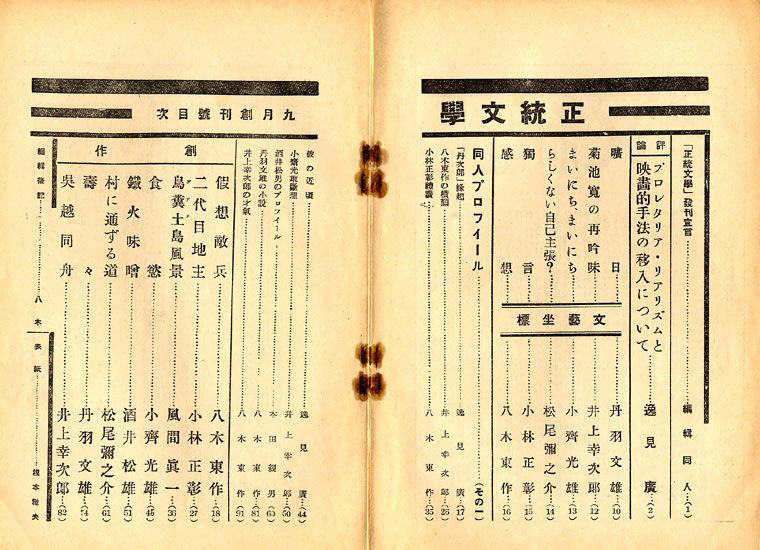 正統文學
「正統文學」發刊宣言……編輯同人…(1)
評論
プロレタリア・リアリズムと
映畫的手法の移入について……逸見廣…(2)
文藝坐標
曠日……丹羽文雄…(10)
菊池寛の再吟味……井上幸次郎…(12)
まいにち、まいにち……小齊光雄…(13)
らしくない自己主張?……松尾彌之介…(14)
獨言……小林正彰…(15)
感想……八木東作…(16)
同人プロフイール……(その一)
「丹次郎」縁起……逸見廣…(17)
八木東作の横顔……井上幸次郎…(26)
小林正彰禮讃……八木東作…(35)
九月創刊號目次
彼の近頃……逸見廣…(44)
小齊光雄斷想……井上幸次郎…(50)
酒井松男のプロフイール……本田親男…(60)
丹羽文雄の小説……八木東作…(81)
井上幸次郎の才氣……八木東作…(91)
創作
假想敵兵……八木東作…(18)
二代目地主……小林正彰…(27)
鳥糞土島風景……風間眞一…(36)
食慾……小齊光雄…(45)
鐵火味噌……酒井松雄…(51)
村に通ずる道……松尾彌之介…(61)
壽々……丹羽文雄…(74)
吳越同舟……井上幸次郎…(82)
編輯後記……八木
表紙……根本雅夫